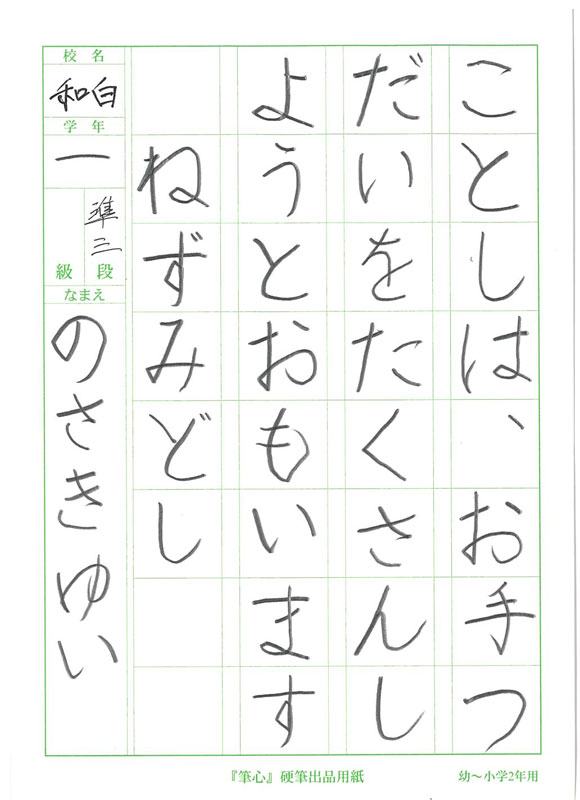 ことしは、お手つ
だいをたくさんし
ようとおもいます
ねずみどし
校名
和白
学年
一
準三
級段
なまえ
のさきゆい
『筆心』硬筆出品用紙
幼〜小学2年用